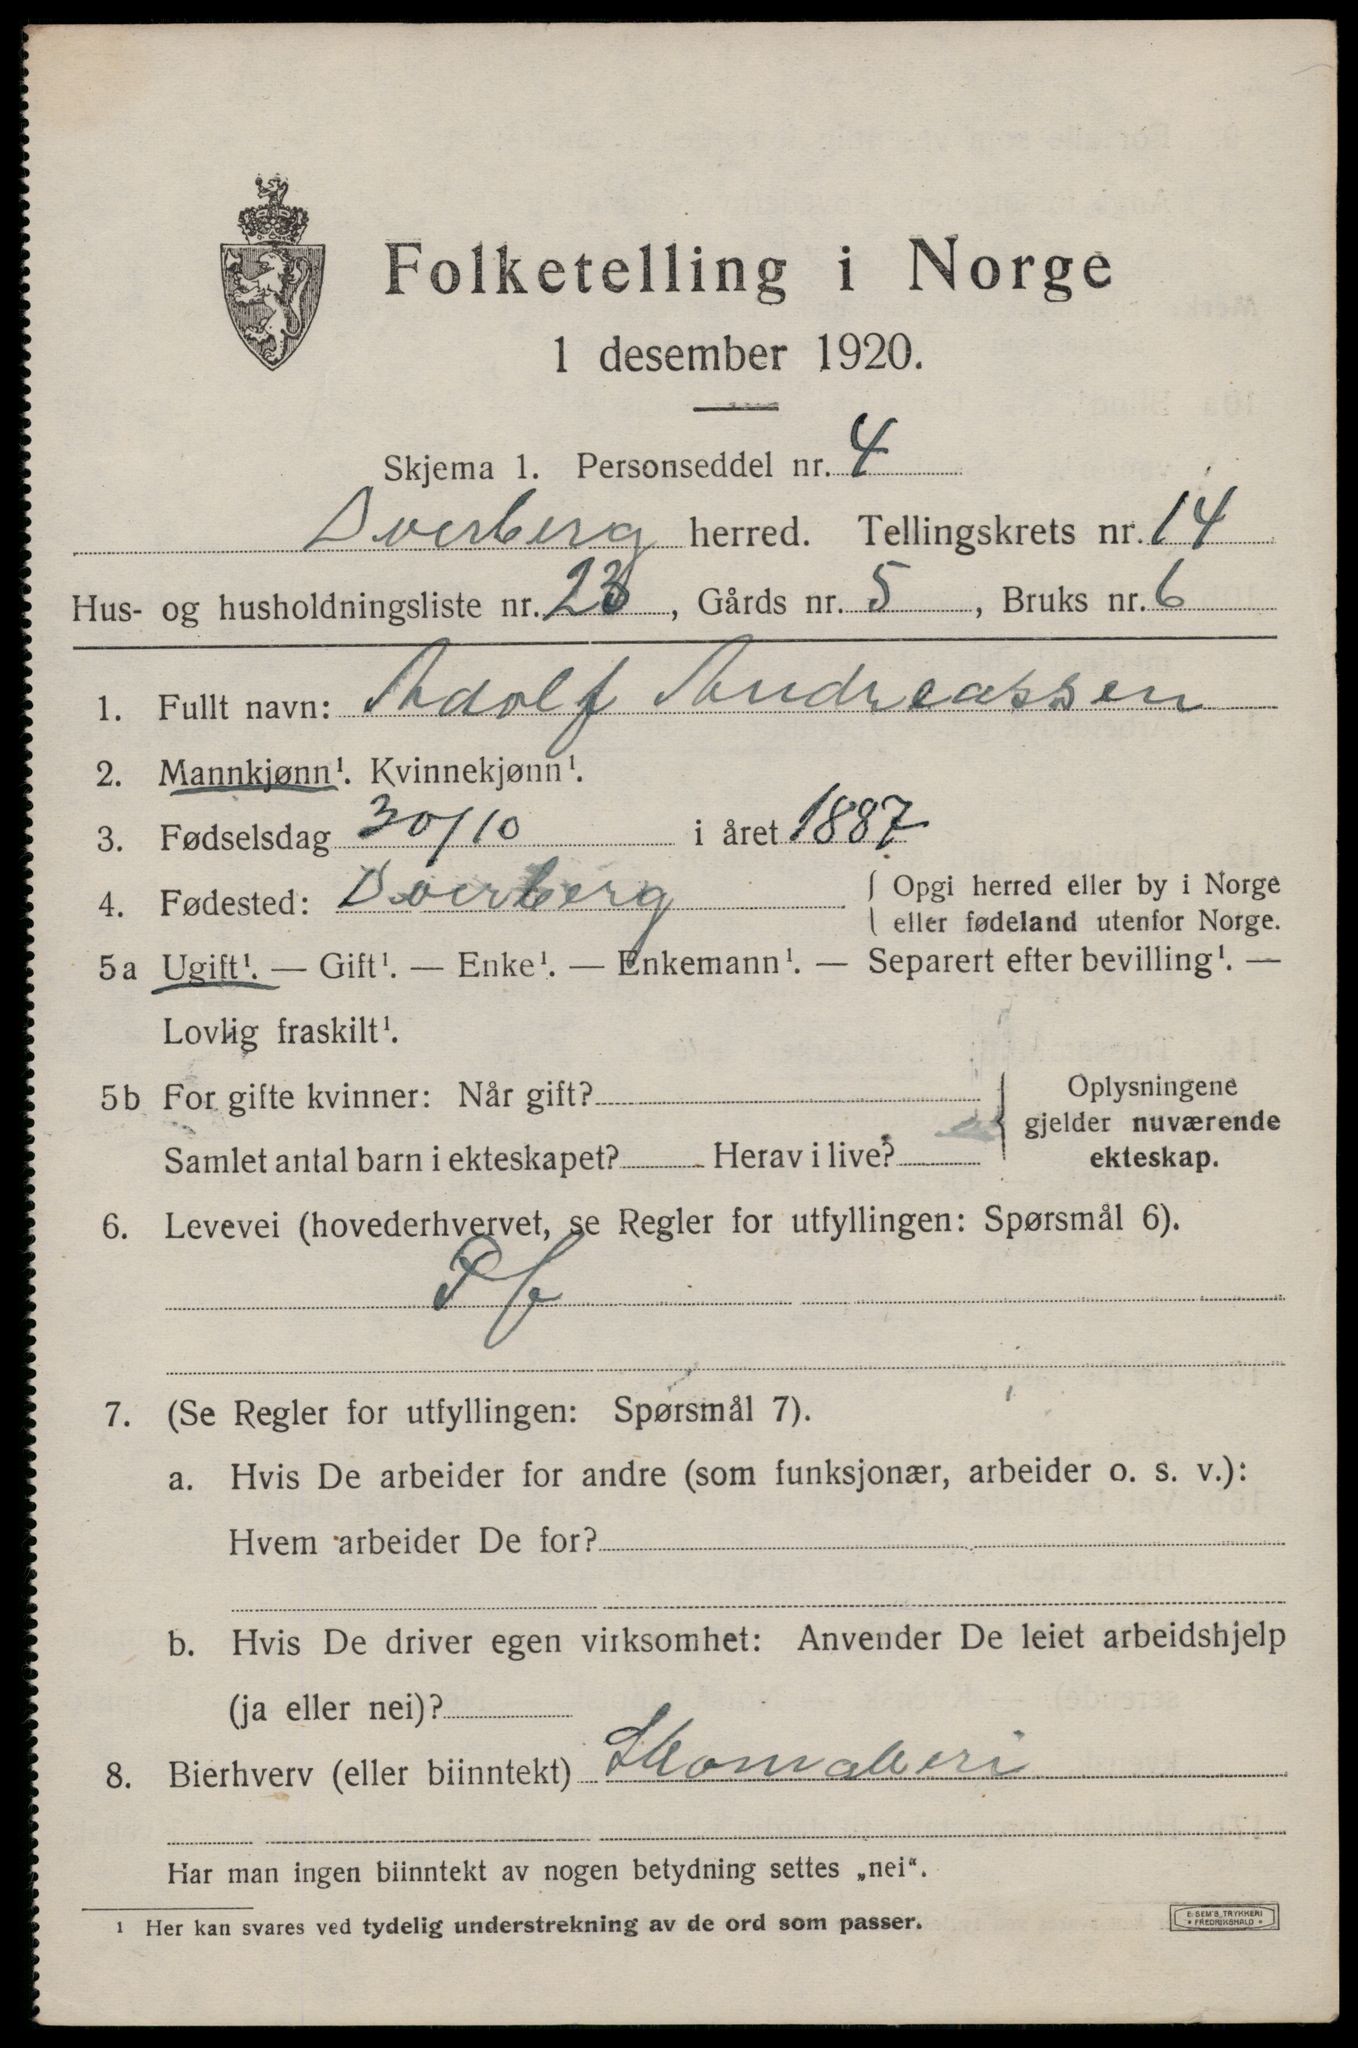 Folketelling i Norge
1 desember 1920.
Skjema 1. Personseddel nr. 4
Dverberg herred. Tellingskrets nr. 14
Hus- og husholdningsliste nr. 23, Gårds nr. 5, Bruks nr. 6
1. Fullt navn: Adolf Andreassen
2. Mannkjønn¹. Kvinnekjønn¹.
3. Fødselsdag 30/10 i året 1887
4. Fødested: Dverberg { Opgi herred eller by i Norge
eller fødeland utenfor Norge.
5a Ugift¹. — Gift¹. — Enke¹. — Enkemann¹. — Separert efter bevilling¹. —
Lovlig fraskilt¹.
5b For gifte kvinner: Når gift?
Samlet antal barn i ekteskapet? Herav i live?
Oplysningene
gjelder nuværende
ekteskap.
6. Levevei (hovederhvervet, se Regler for utfyllingen: Spørsmål 6).
7. (Se Regler for utfyllingen: Spørsmål 7).
a. Hvis De arbeider for andre (som funksjonær, arbeider o. s. v.):
Hvem arbeider De for?
b. Hvis De driver egen virksomhet: Anvender De leiet arbeidshjelp
(ja eller nei)?
8. Bierhverv (eller biinntekt) Skomakeri
Har man ingen biinntekt av nogen betydning settes „nei“.
¹ Her kan svares ved tydelig understrekning av de ord som passer.
E. SEM'S TRYKKERI
* FREDRIKSHALD *